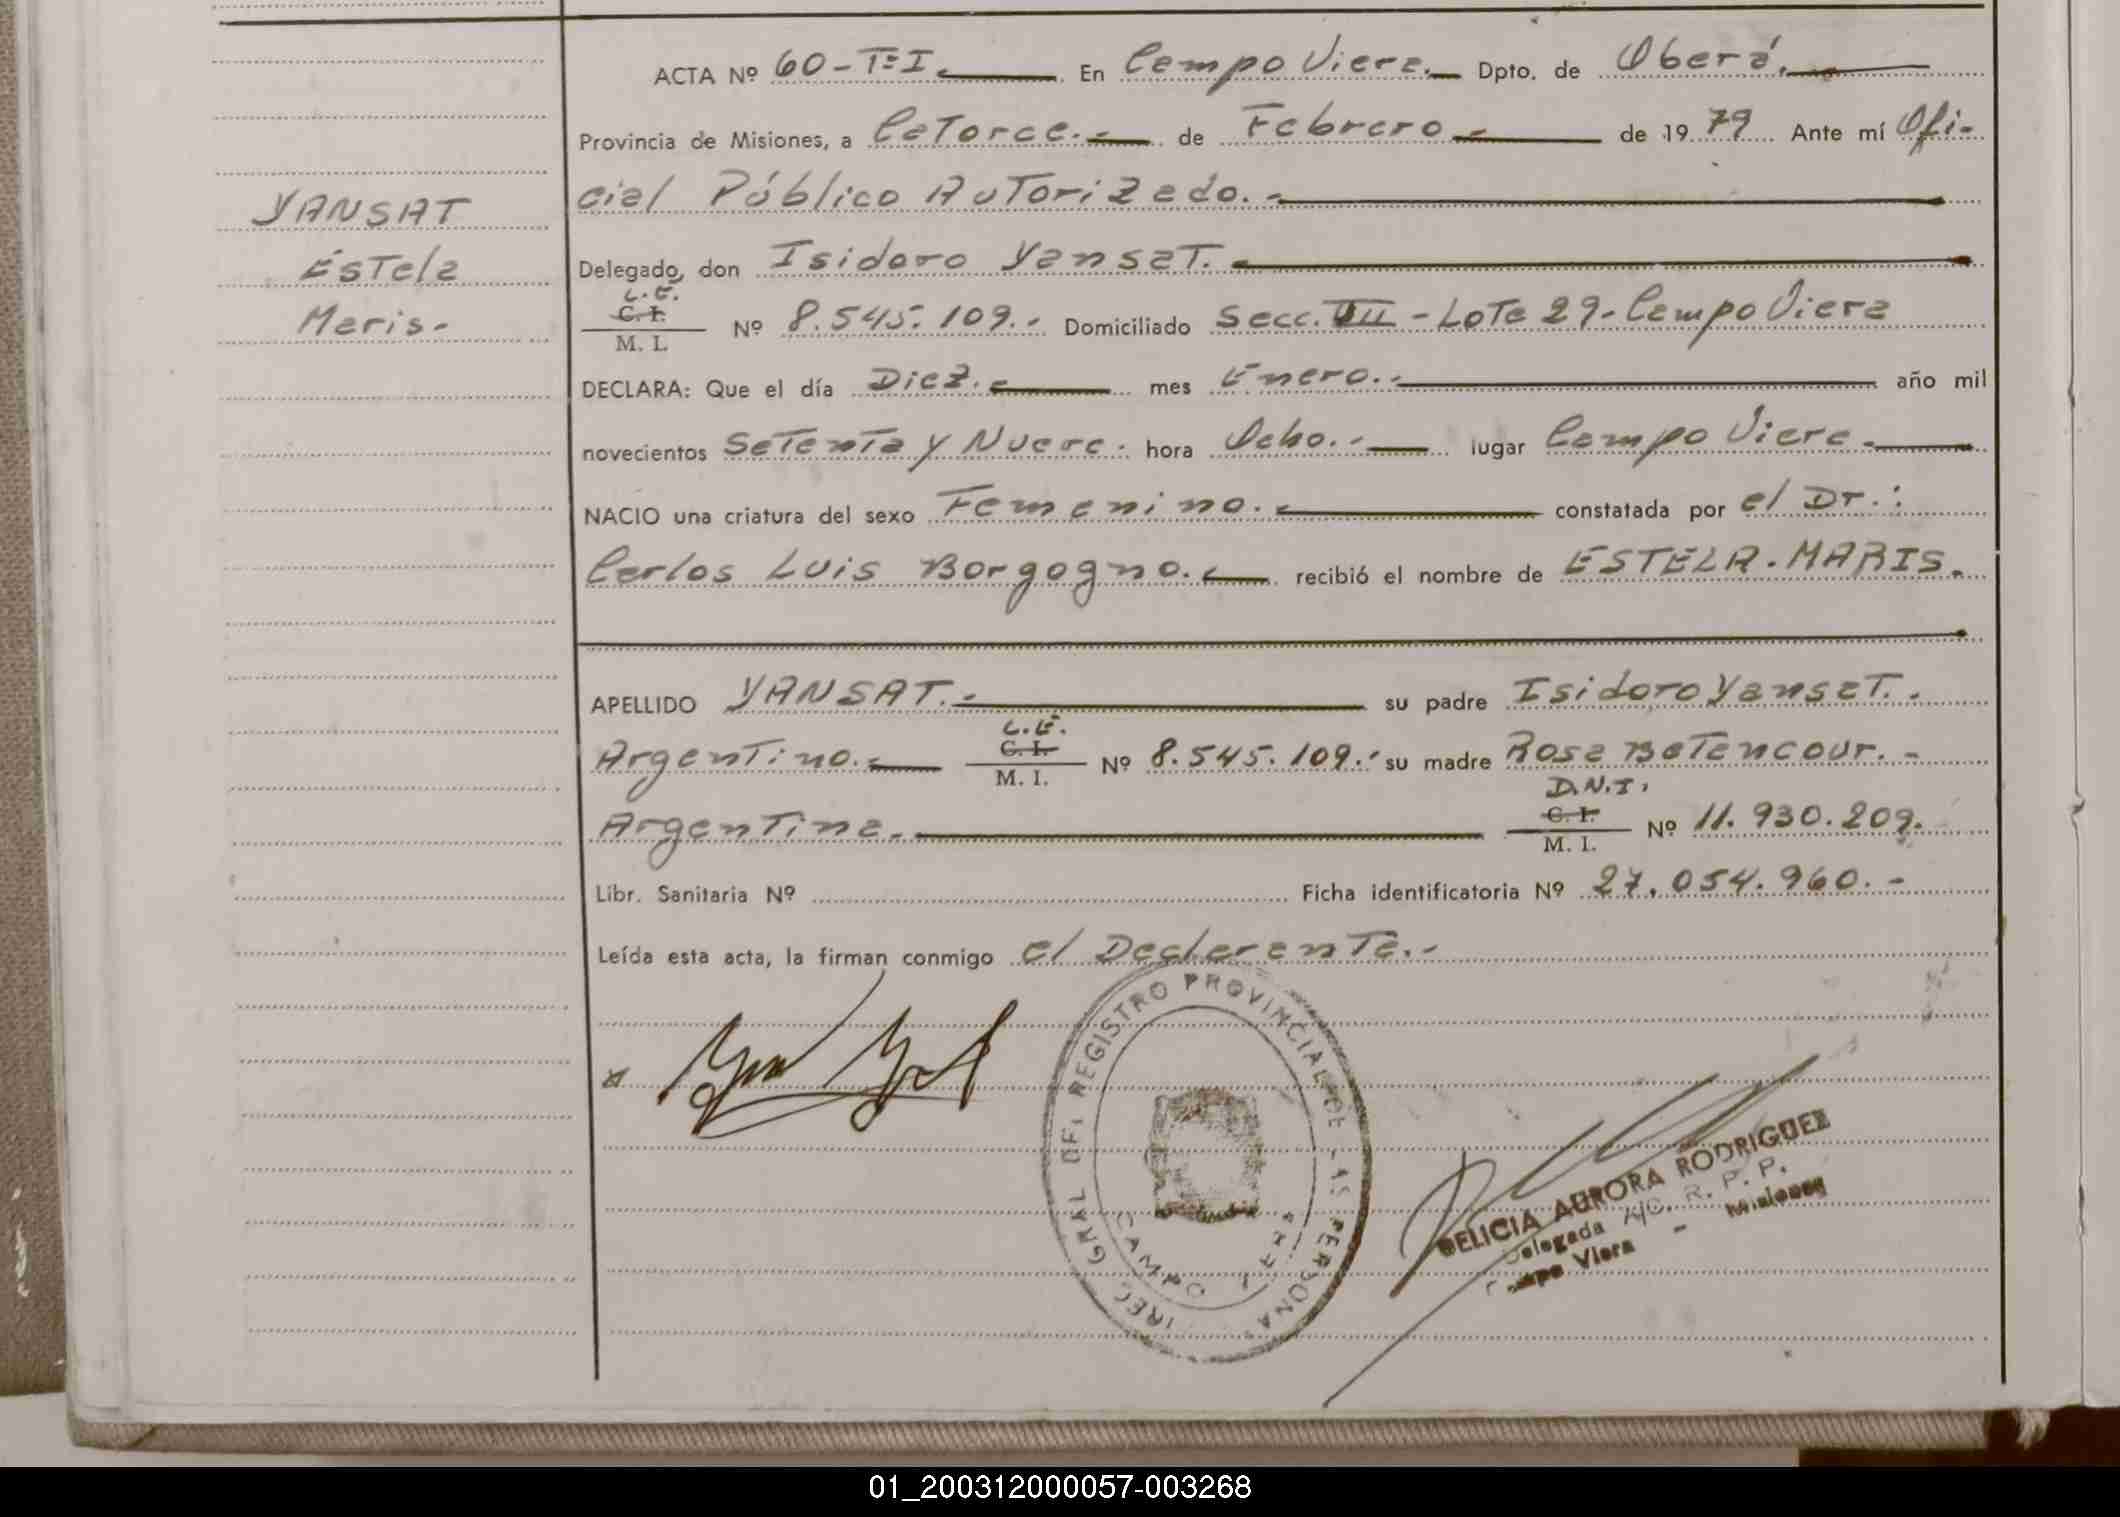 ACTA Nº 60-Tº I. En Campo Viera. Dpto. de Oberá.
Provincia de Misiones, a Catorce.- de Febrero.- de 1979 Ante mí Ofi-
cial Público Autorizado.-
YANSAT
Estela
Maris.-
Delegado, don Isidoro Yansat.
L.E.
C. I.
M. I.
Nº 8.545.109.- Domiciliado Secc. VII - Lote 29- Campo Viera
DECLARA: Que el día Diez.- mes Enero.- año mil
novecientos Setenta y Nueve. hora Ocho.- lugar Campo Viera.-
NACIO una criatura del sexo Femenino.- constatada por el Dr.:
Carlos Luis Borgogno.- recibió el nombre de ESTELA. MARIS.
APELLIDO YANSAT.- su padre Isidoro Yansat.-
L.E.
Argentino.- C. I. Nº 8.545.109.- su madre Rosa Betencour.-
M. I.
D.N.I.
Argentina.- C. I. Nº 11.930.209.
M. I.
Libr. Sanitaria Nº Ficha identificatoria Nº 27.054.960.-
Leída esta acta, la firman conmigo el Declarante.-
IREC. GRAL DEL REGISTRO PROVINCIAL DE LAS PERSONAS
CAMPO
DELICIA AURORA RODRIGUEZ
Delegada A/C. R. P. P.
Campo Viera - Misiones
01_200312000057-003268